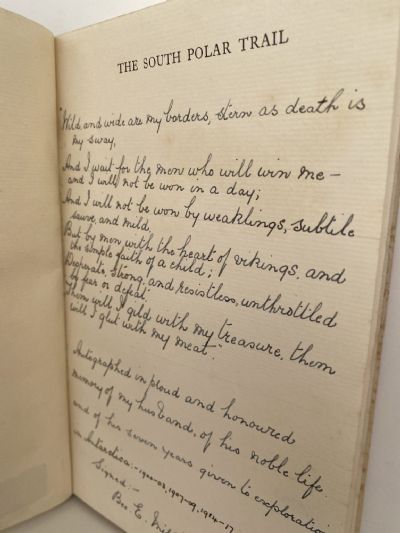 THE SOUTH POLAR TRAIL
"Wild, and wide are my borders, stern as death is
my sway,
And I wait for the men who will win me —
and I will not be won in a day;
And I will not be won by weaklings, subtile
suave, and mild,
But by men with the heart of vikings, and
the simple faith of a child;
Desperate, strong, and resistless, unthrottled
by fear or defeat.
Them will I gild with my treasure, them
will I glut with my meat."
Autographed in proud and honoured
memory of my husband, of his noble life.
and of his seven years given to exploration
in Antarctica:-
Signed:-